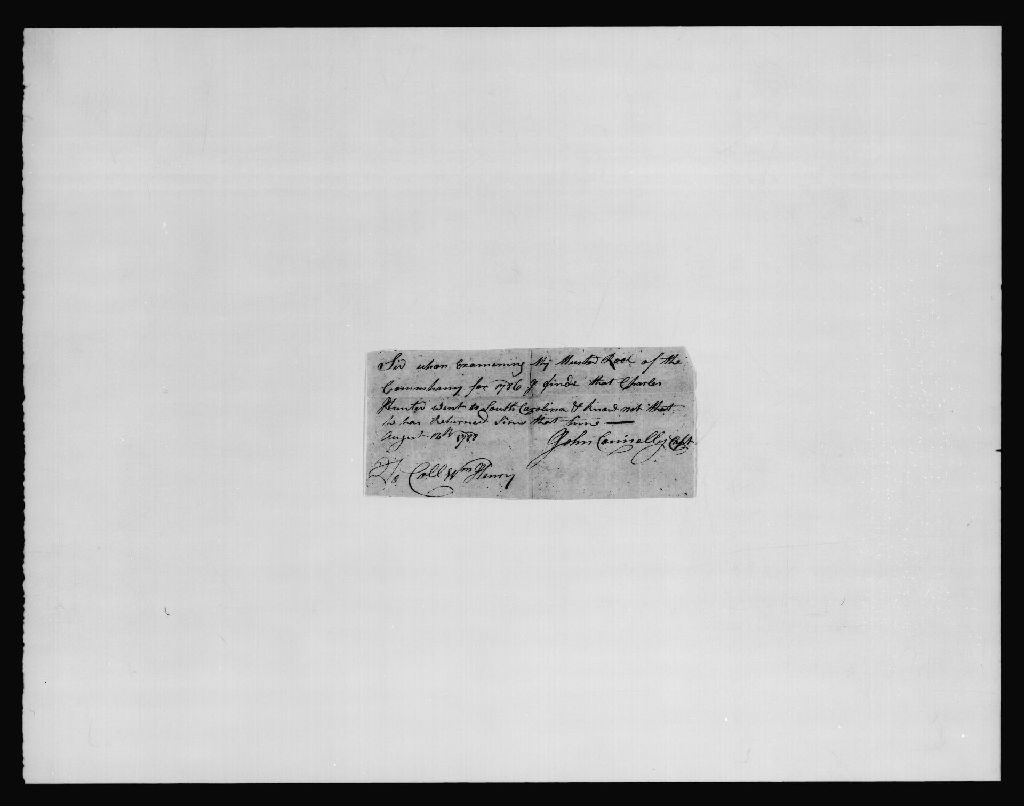 Sir upon Examining My Muster Roel of the
Commpany for 1786 I finde that Charles
Hunter went to South Carolina & knows not that
is has Returned Sinc that time —
August 16th 1788
John Connally Capt
To Coll Wm Henry